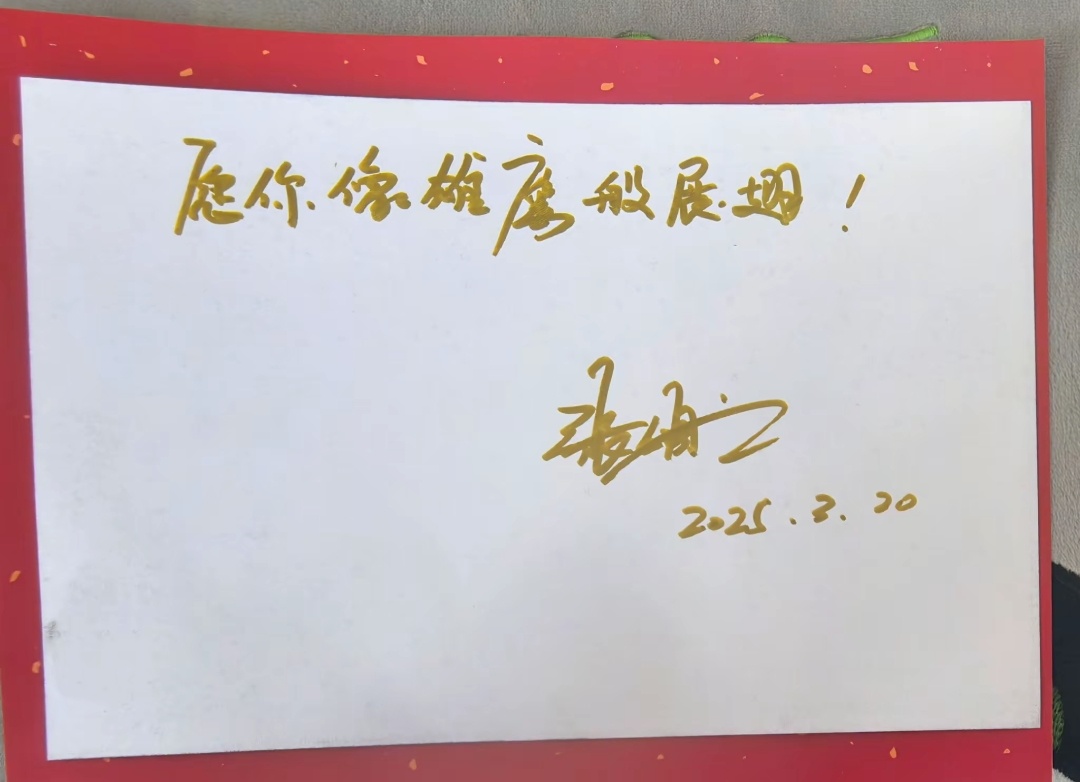 愿你像雄鹰般展翅！
2025.3.20